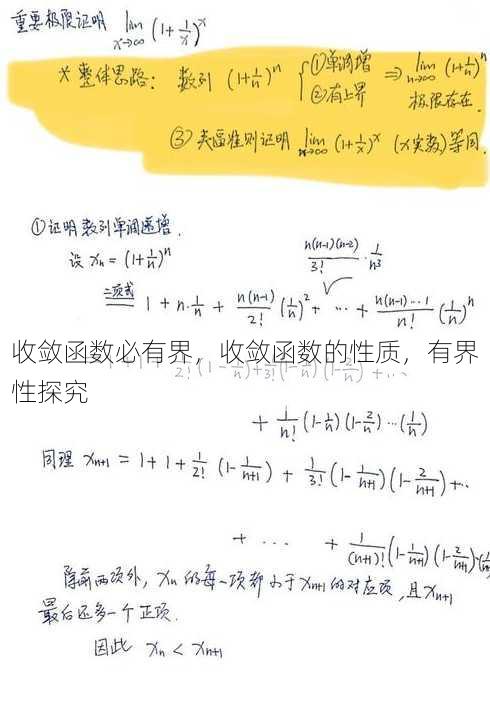 重要极限证明 lim x→∞ (1+1/x)^x
* 整体思路： 数列 (1+1/n)^n { ①单调增 ②有上界 ⇒ lim n→∞ (1+1/n)^n 极限存在.
③ 夹逼准则证明 lim x→∞ (1+1/x)^x (x实数)等同.
①证明数列单调递增.
设 xn = (1+1/n)^n
n(n-1)(n-2)/3! · 1/n³
二项式 = 1 + n·1/n + n(n-1)/2! (1/n)² + ··· + n(n-1)···1/n! (1/n)^n
收敛函数必有界，收敛函数的性质，有界
性探究
1/2! (1-1/n) + 1/3! (1-1/n)(1-2/n) + ···
+ 1/n! (1-1/n)(1-2/n)···(1/n)
同理 xn+1 = 1+1+1/2! (1-1/(n+1)) + 1/3! (1-1/(n+1))(1-2/(n+1)) + ···
+ ··· + 1/(n+1)! (1-1/(n+1))(1-2/(n+1))···
除前两项外, xn 的每一项都小于 xn+1 的对应项, 且 xn+1
最后还多一个正项.
因此 xn < xn+1